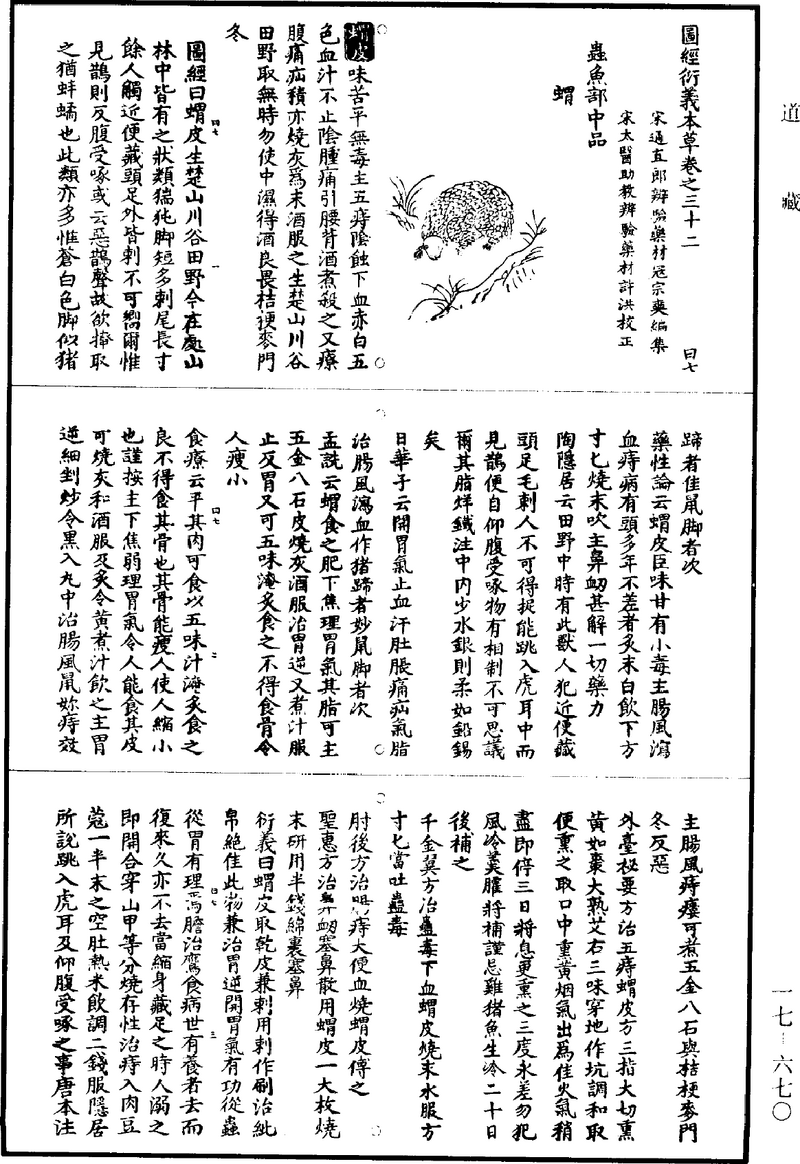 道藏
圖經衍義本草卷之三十二
曰七
宋通直郎辨驗藥材寇宗奭編集
宋太醫助教辨驗藥材許洪校正
蟲魚部中品
蝟
蝟皮味苦平無毒主五痔陰蝕下血赤白五
色血汁不止陰腫痛引腰背酒煮殺之又療
腹痛疝積亦燒灰爲末酒服之生楚山川谷
田野取無時勿使中濕得酒良畏桔梗麥門
冬
圖經曰蝟皮生楚山川谷田野今在處山
林中皆有之狀類猯㹠脚短多刺尾長寸
餘人觸近便藏頭足外皆刺不可嚮爾惟
見鵲則反腹受啄或云惡鵲聲故欲掩取
之猶蚌蠣也此類亦多惟蒼白色脚似猪
蹄者佳鼠脚者次
藥性論云蝟皮臣味甘有小毒主腸風瀉
血痔病有頭多年不差者炙末白飲下方
寸匕燒末吹主鼻衂甚解一切藥力
陶隱居云田野中時有此獸人犯近便藏
頭足毛刺人不可得捉能跳入虎耳中而
見鵲便自仰腹受啄物有相制不可思議
爾其脂烊鐵注中内少水銀則柔如鉛錫
矣
日華子云開胃氣止血汗肚脹痛疝氣脂
治腸風瀉血作猪蹄者妙鼠脚者次
孟詵云蝟食之肥下焦理胃氣其脂可主
五金八石皮燒灰酒服治胃逆又煮汁服
止反胃又可五味淹炙食之不得食骨令
人瘦小
食療云平其肉可食以五味汁淹炙食之
良不得食其骨也其骨能瘦人使人縮小
也謹按主下焦弱理胃氣令人能食其皮
可燒灰和酒服及炙令黄煮汁飲之主胃
逆細剉炒令黑入丸中治腸風鼠妳痔效
主腸風痔瘻可煮五金八石與桔梗麥門
冬反惡
外臺秘要方治五痔蝟皮方三指大切熏
黄如棗大熟艾右三味穿地作坑調和取
便熏之取口中熏黄烟氣出爲佳火氣稍
盡即停三日將息更熏之三度永差勿犯
風冷羹臛將補謹忌雞猪魚生冷二十日
後補之
千金翼方治蠱毒下血蝟皮燒末水服方
寸匕當吐蠱毒
肘後方治腸痔大便血燒蝟皮傅之
聖惠方治鼻衂塞鼻散用蝟皮一大枚燒
末研用半錢綿裹塞鼻
衍義曰蝟皮取乾皮兼刺用刺作刷治紕
帛絶佳此物兼治胃逆開胃氣有功從蟲
從胃有理焉膽治鷹食病世有養者去而
復來久亦不去當縮身藏足之時人溺之
即開合穿山甲等分燒存性治痔入肉豆
蔻一半末之空肚熱米飲調二錢服隱居
所說跳入虎耳及仰腹受啄之事唐本注
一七－六七〇